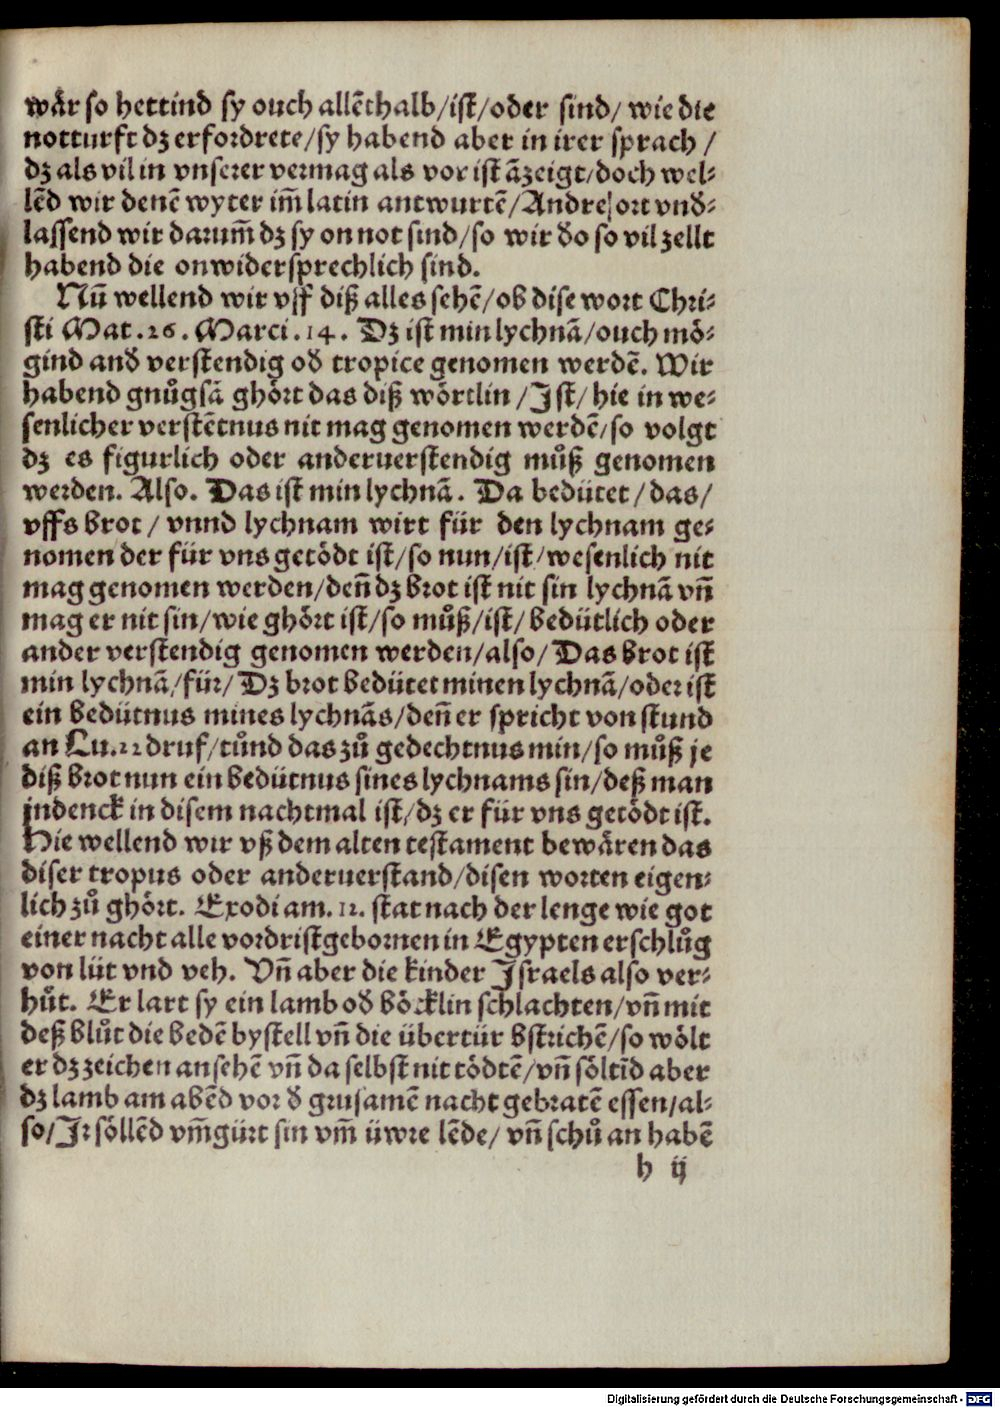 wår so hettind sy ouch allēthalb/ist/oder sind/ wie die
notturft dz erfordrete/sy habend aber in irer sprach /
dz als vil in vnserer vermag als vor ist āzeigt/doch wel⸗
lēd wir denē wyter im̄ latin antwurtē/Andre ort vnd⸗
lassend wir darum̄ dz sy on not sind/so wir do so vil zellt
habend die onwidersprechlich sind.
Nū wellend wir vff diß alles sehē/ob dise wort Chri⸗
sti Mat.26.Marci.14. Dz ist min lychnā/ouch mö⸗
gind and verstendig od tropice genomen werdē. Wir
habend gnůgsā ghört das diß wörtlin /Ist/ hie in we⸗
senlicher verstētnus nit mag genomen werdē/so volgt
dz es figurlich oder anderuerstendig můß genomen
werden. Also. Das ist min lychnā. Da bedütet/das/
vffs brot/ vnnd lychnam wirt für den lychnam ge⸗
nomen der für vns getödt ist/so nun/ist/wesenlich nit
mag genomen werden/den̄ dz brot ist nit sin lychnā vn̄
mag er nit sin/wie ghört ist/so můß/ist/bedütlich oder
ander verstendig genomen werden/also/Das brot ist
min lychnā/für/Dz brot bedütet minen lychnā/oder ist
ein bedütnus mines lychnās/den̄ er spricht von stund
an Lu.22 druf/tůnd das zů gedechtnus min/so můß je
diß brot nun ein bedütnus sines lychnams sin/deß man
jndenck in disem nachtmal ist/dz er für vns getödt ist.
Hie wellend wir vß dem alten testament bewären das
diser tropus oder anderuerstand/disen worten eigen⸗
lich zů ghört. Exodi am.12. stat nach der lenge wie got
einer nacht alle vordristgebornen in Egypten erschlůg
von lüt vnd veh. Vn̄ aber die kinder Israels also ver⸗
hůt. Er lart sy ein lamb od böcklin schlachten/vn̄ mit
deß blůt die bedē bystell vn̄ die übertür bstrichē/so wölt
er dz zeichen ansehē vn̄ da selbst nit tödtē/vn̄ söltīd aber
dz lamb am abēd vor d grusamē nacht gebratē essen/al⸗
so/Ir söllēd vm̄gürt sin vm̄ üwre lēde/ vn̄ schů an habē
h ij
Digitalisierung gefördert durch die Deutsche Forschungsgemeinschaft - DFG